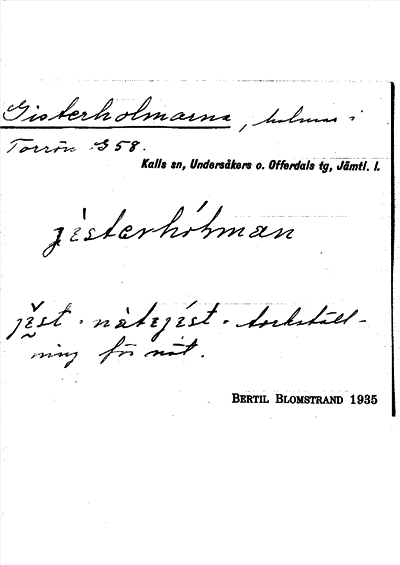 Gisterholmarna, holmar i
Torrön S 58.
Kalls sn, Undersåkers o. Offerdals tg, Jämtl. l.
jìsterhólman
jìst · nàtèjíst · torkställ-
ning för nät.
BERTIL BLOMSTRAND 1935